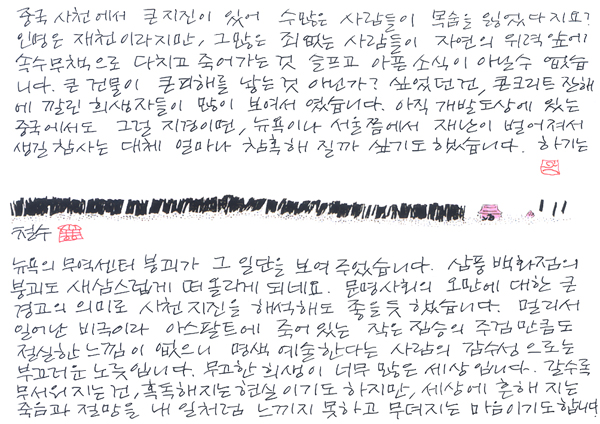 중국 사천에서 큰 지진이 있어 수많은 사람들이 목숨을 잃었다지요?
인명은 재천이라지만, 그많은 죄없는 사람들이 자연의 위력앞에
속수무책으로 다치고 죽어가는 것 슬프고 아픈 소식이 아닐수 없었습
니다. 큰 건물이 큰피해를 낳는 것 아닌가? 싶었던 건, 콘크리트 잔해
에 깔린 희생자들이 많이 보여서 였습니다. 아직 개발도상에 있는
중국에서도 그럴 지경이면, 뉴욕이나 서울쯤에서 재난이 벌어져서
생길 참사는 대체 얼마나 참혹해 질까 싶기도 했습니다. 하기는
철수
뉴욕의 무역센터 붕괴가 그 일단을 보여 주었습니다. 삼풍 백화점의
붕괴도 새삼스럽게 떠올라게 되네요. 문명사회의 오만에 대한 큰
경고의 의미로 사천 지진을 해석해도 좋을듯 했습니다. 멀리서
일어난 비극이라 아스팔트에 죽어있는 작은 짐승의 주검만큼도
절실한 느낌이 없으니 명색 예술한다는 사람의 감수성으로는
부끄러운 노릇입니다. 무고한 희생이 너무 많은 세상입니다. 갈수록
무서워지는 건, 혹독해지는 현실이기도 하지만, 세상에 흔해 지는
죽음과 절망을 내 일처럼 느끼지 못하고 무뎌지는 마음이기도합니다